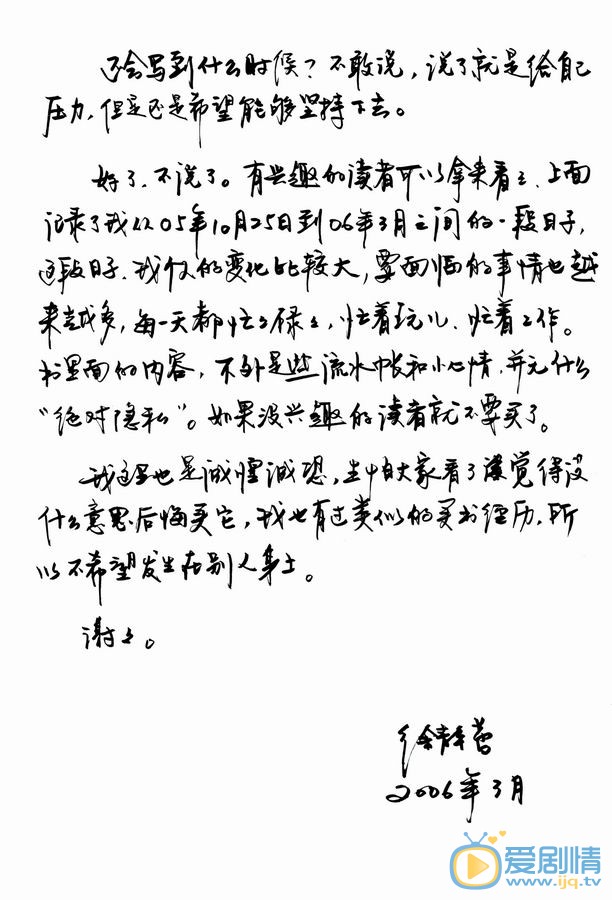 还会写到什么时候？不敢说，说了就是给自己
压力，但是还是希望能够坚持下去。
好了，不说了。有兴趣的读者可以拿来看看，上面
记录了我从05年10月25日到06年3月之间的一段日子，
这段日子，我个人的变化比较大，要面临的事情也越
来越多，每一天都忙忙碌碌，忙着玩儿、忙着工作。
书里面的内容，不外是些流水帐和小心情，并无什么
“绝对隐私”。如果没兴趣的读者就不要买了。
我这里也是诚惶诚恐，生怕大家看了后觉得没
什么意思后悔买它，我也有过类似的买书经历，所
以不希望发生在别人身上。
谢谢。
徐静蕾
2006年3月
爱剧情
www.ijq.tv